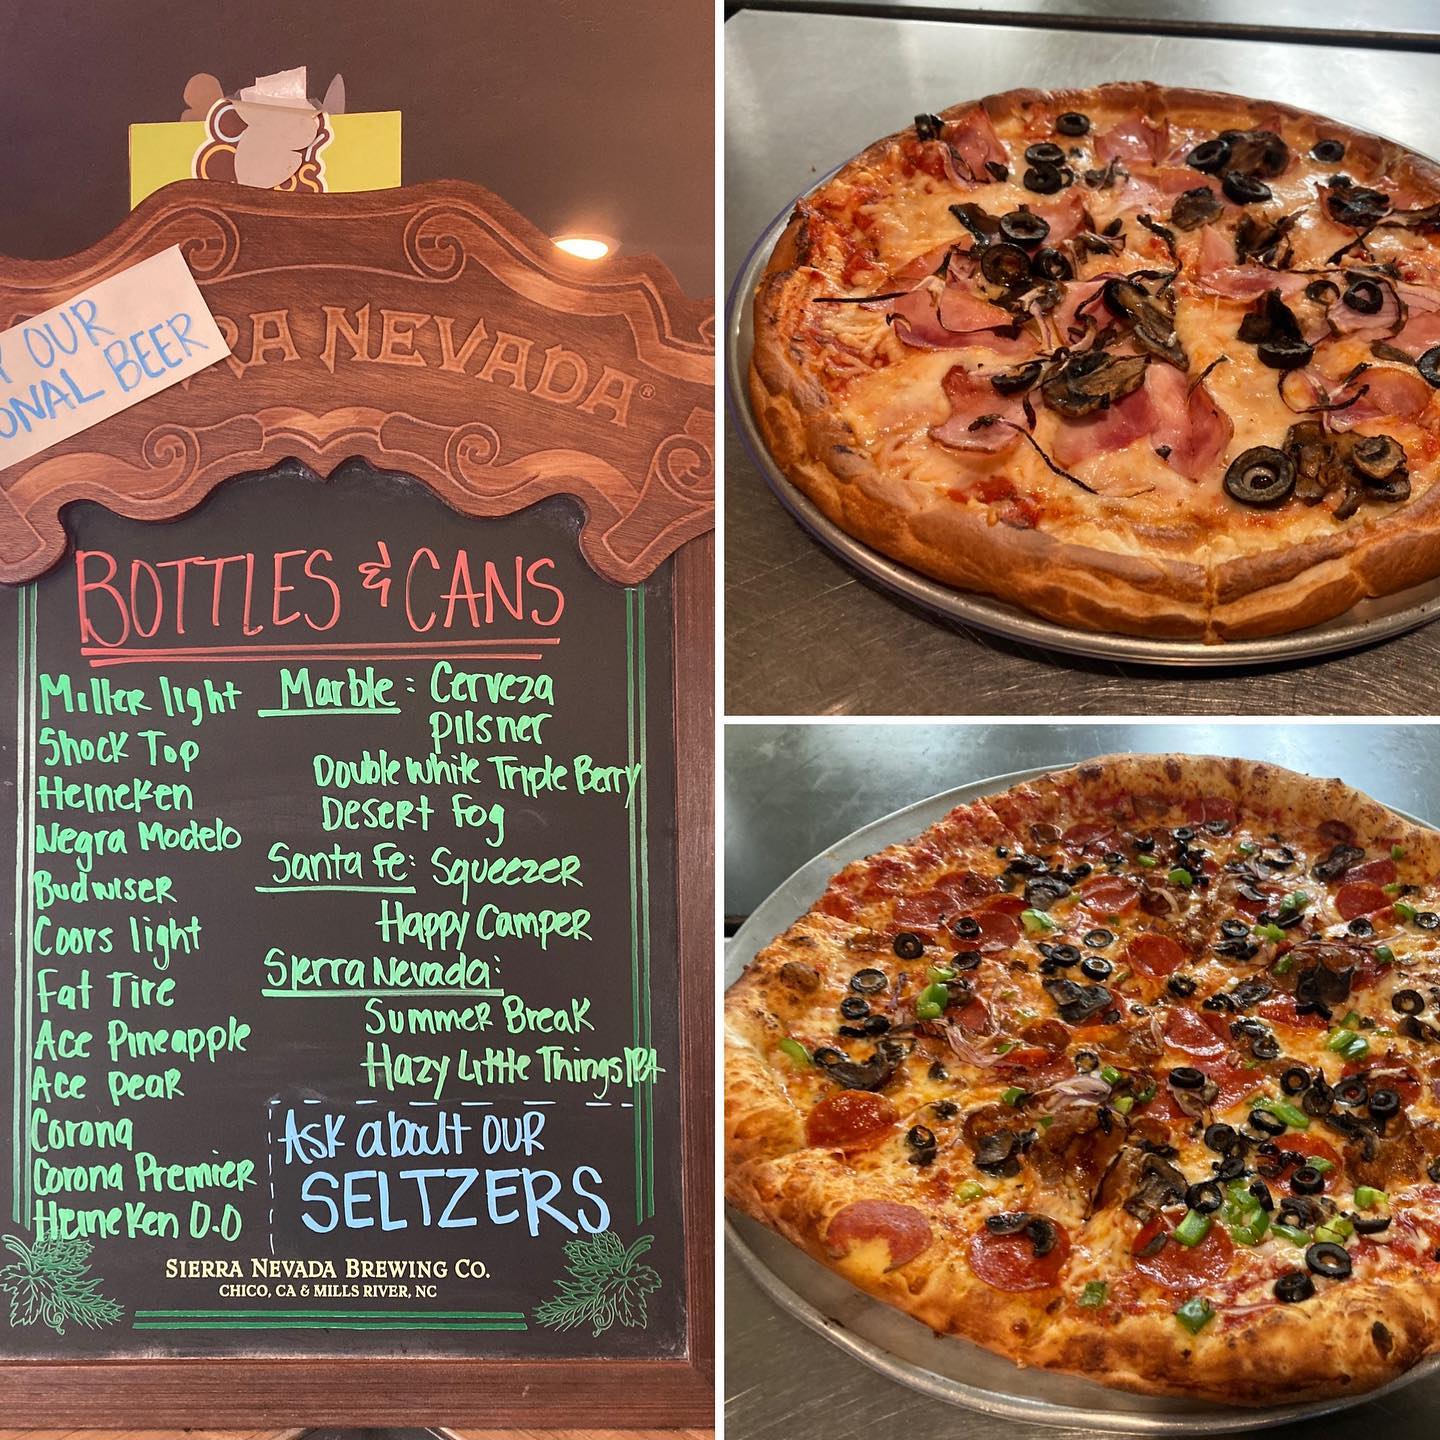 OUR
ONAL BEER
RA NEVADA®
BOTTLES & CANS
Miller light
Shock Top
Heineken
Negra Modelo
Budwiser
Coors light
Fat Tire
Ace Pineapple
Ace Pear
Corona
Corona Premier
Heineken 0.0
Marble: Cerveza
Pilsner
Double White Triple Berry
Desert Fog
Santa Fe: Squeezer
Happy Camper
Sierra Nevada:
Summer Break
Hazy Little Things IPA
Ask about our
SELTZERS
SIERRA NEVADA BREWING CO.
CHICO, CA & MILLS RIVER, NC